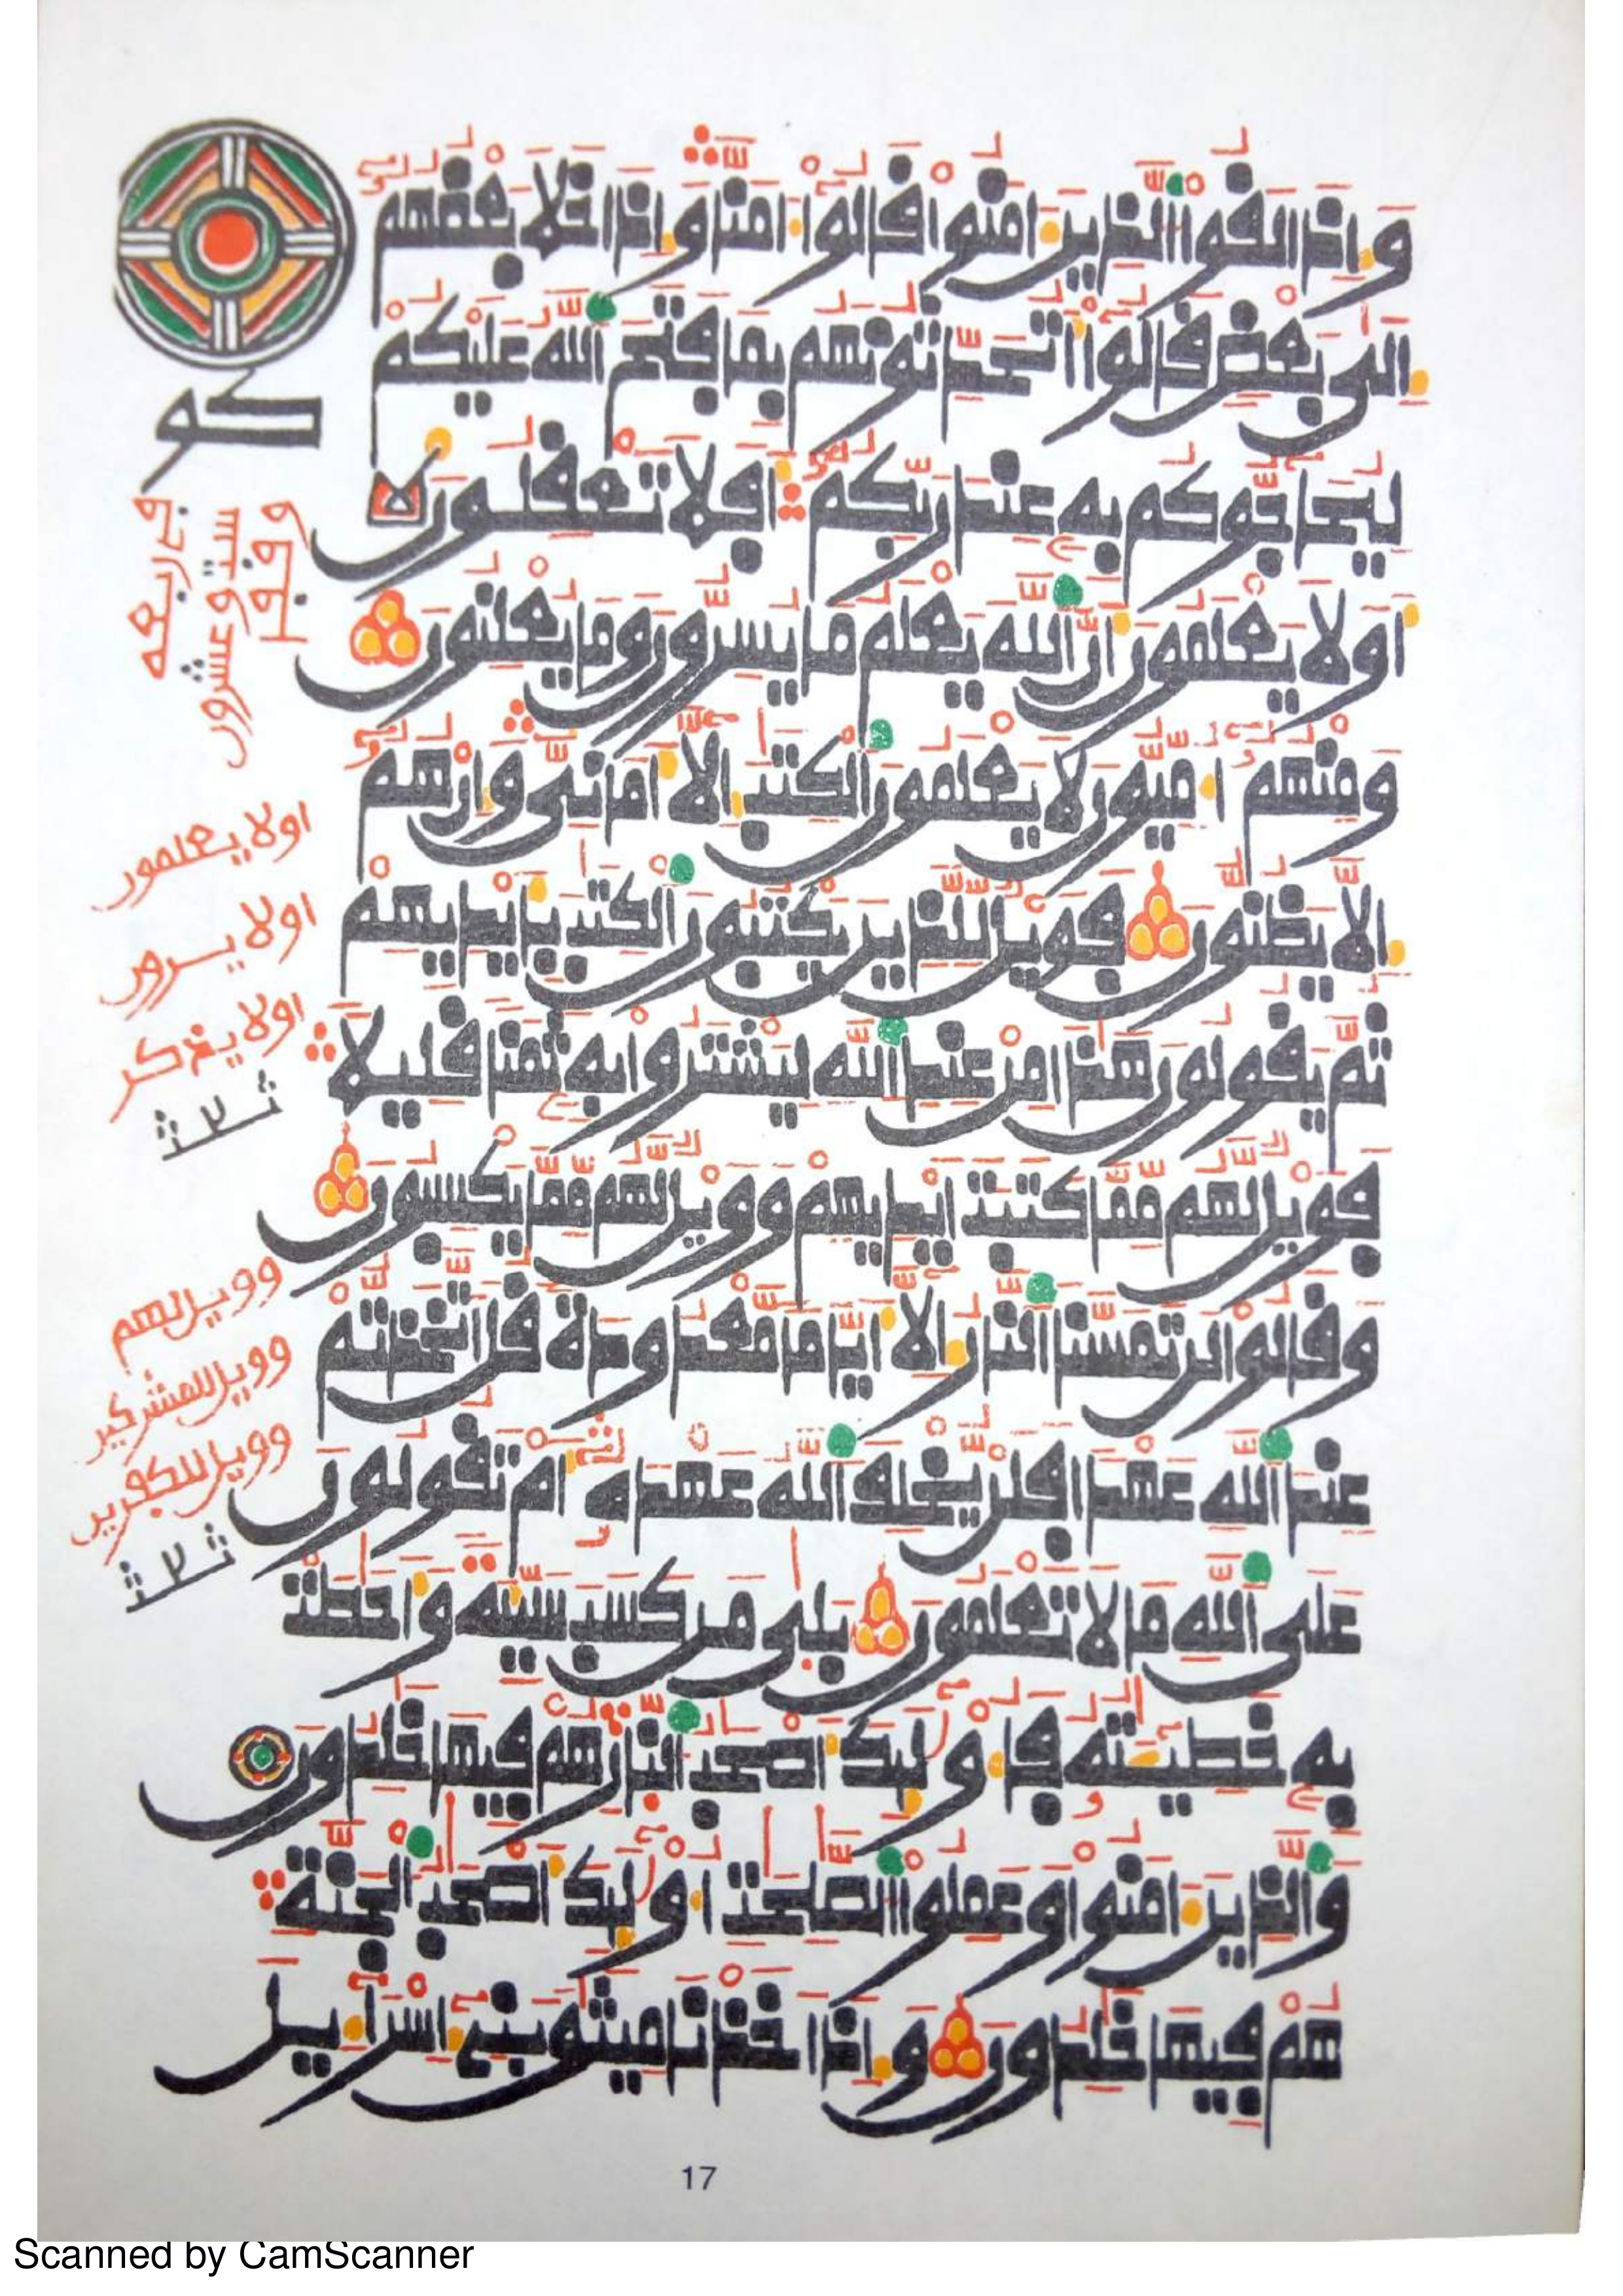 وإذا لقوا الذين ءامنوا قالوا ءامنا وإذا خلا بعضهم
إلى بعض قالوا أتحدثونهم بما فتح الله عليكم
ليحاجوكم به عند ربكم أفلا تعقلون
أولا يعلمون أن الله يعلم ما يسرون وما يعلنون
ومنهم أميون لا يعلمون الكتب إلا أماني وإن هم
إلا يظنون فويل للذين يكتبون الكتب بأيديهم
ثم يقولون هذا من عند الله ليشتروا به ثمنا قليلا
فويل لهم مما كتبت أيديهم وويل لهم مما يكسبون
وقالوا لن تمسنا النار إلا أياما معدودة قل أتخذتم
عند الله عهدا فلن يخلف الله عهده أم تقولون
على الله ما لا تعلمون بلى من كسب سيئة وأحطت
به خطيئته فأولئك أصحب النار هم فيها خلدون
والذين ءامنوا وعملوا الصلحت أولئك أصحب الجنة
هم فيها خلدون وإذ أخذنا ميثق بني إسراءيل
كو
اولا يعلمون
اولا يرون
اولا يذكر
وويل لهم
وويل للمشركين
وويل للكفرين
17
Scanned by CamScanner